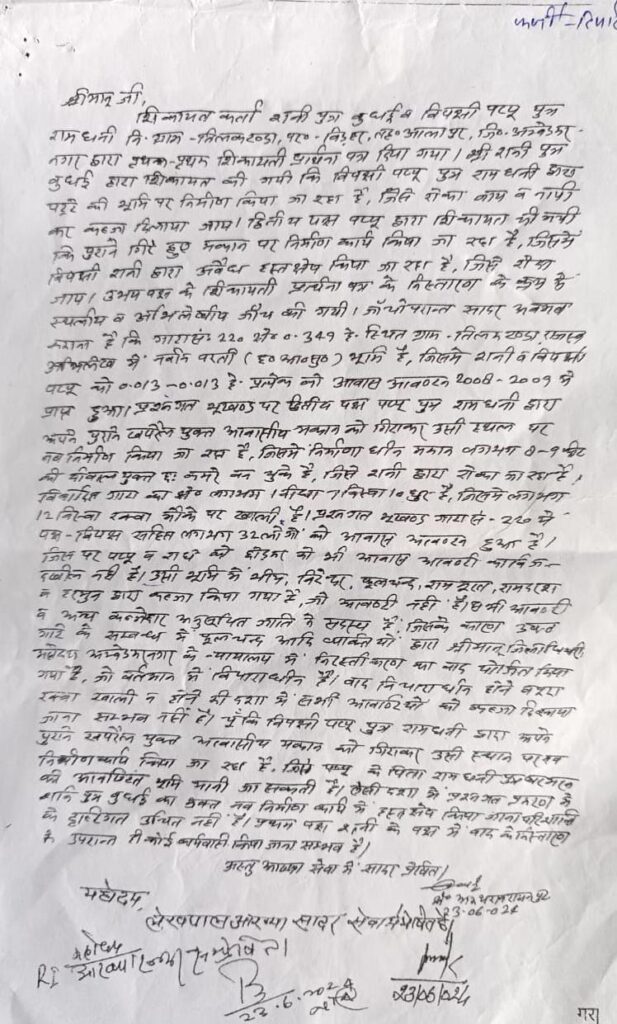 श्रीमान् जी,
शिकायत कर्ता शनी पुत्र बुधई व विपक्षी पप्पू पुत्र
रामधनी नि. ग्राम-तिलकटण्डा, पर०-बिड़हर, तह० आलापुर, जि० अम्बेडकर-
नगर द्वारा पृथक-पृथक शिकायती प्रार्थना पत्र दिया गया। श्री शनी पुत्र
बुधई द्वारा शिकायत की गयी कि विपक्षी पप्पू पुत्र रामधनी द्वारा
पट्टे की भूमि पर निर्माण किया जा रहा है, जिसे रोका जाय व नापी
कर कब्जा दिलाया जाय। द्वितीय पक्ष पप्पू द्वारा शिकायत की गयी
कि पुराने गिरे हुए मकान पर निर्माण कार्य किया जा रहा है, जिसमें
विपक्षी शनी द्वारा अवैध हस्तक्षेप किया जा रहा है, जिसे रोका
जाय। उभय पक्ष के शिकायती प्रार्थना पत्र के निस्तारण के क्रम में
स्थलीय व अभिलेखीय जाँच की गयी। जाँचोपरान्त सादर अवगत
कराना है कि गाटा सं. 220 क्षे० 0.349 हे. स्थित ग्राम-तिलकटण्डा राजस्व
अभिलेख में नवीन परती (ह० आ० सु०) भूमि है, जिसमें शनी व विपक्षी
पप्पू को 0.013-0.013 हे. प्रत्येक को आवास आवंटन 2008-2009 में
प्राप्त हुआ। प्रश्नगत भूखण्ड पर द्वितीय पक्ष पप्पू पुत्र रामधनी द्वारा
अपने पुराने खपरैल युक्त आवासीय मकान को गिराकर उसी स्थल पर
नव निर्माण किया जा रहा है, जिसमें निर्माणाधीन मकान लगभग 8-9 फीट
की दीवाल युक्त छः कमरे बन चुके है, जिसे शनी द्वारा रोका जा रहा है,
विवादित गाटा का क्षे० लगभग 1 बीघा 7 बिस्वा 10 धुर है, जिसमें लगभग
12 बिस्वा रकबा मौके पर खाली है। प्रश्नगत भूखण्ड गाटा सं-220 में
पक्ष-विपक्ष सहित लगभग 32 लोगों को आवास आवंटन हुआ है।
जिस पर पप्पू व राधे को छोड़कर कोई भी आवास आवंटी काबिज-
दखील नहीं है। उसी भूमि में भीम, फूलचन्द, राम सूरत, रामदरश
व द्वारा कब्जा किया गया है, जो आवंटी नहीं है। सभी आवंटी
व अन्य कब्जेदार अनुसूचित जाति के सदस्य हैं जिसके कारण उक्त
गाटे के सम्बन्ध में फूलचन्द आदि व्यक्तियों द्वारा श्रीमान् जिलाधिकारी
महोदय अम्बेडकरनगर के न्यायालय में निरस्तीकरण का वाद योजित किया
गया है, जो वर्तमान में विचाराधीन है। वाद विचाराधीन होने व
रकबा खाली न होने की दशा में सभी आवंटियों को कब्जा दिलाया
जाना सम्भव नहीं है। चूँकि विपक्षी पप्पू पुत्र रामधनी द्वारा अपने
पुराने खपरैल युक्त आवासीय मकान को गिराकर उसी स्थान पर नव
निर्माण कार्य किया जा रहा है, जिसे पप्पू के पिता रामधनी पुत्र
की आवंटित भूमि मानी जा सकती है। ऐसी दशा में प्रश्नगत प्रकरण में
शनि पुत्र बुधई का उक्त नव निर्माण कार्य में हस्तक्षेप किया जाना परिस्थिति
के दृष्टिगत उचित नहीं है। प्रथम पक्ष शनी के पक्ष में वाद के निस्तारण
के उपरान्त ही कोई कार्यवाही किया जाना सम्भव है।
अस्तु आख्या सेवा में सादर प्रेषित।
23-06-024
महोदय,
लेखपाल आख्या सादर सेवा में प्रेषित है।
महोदय
RI आख्या सम्प्रेषित।
23.6.2024
23/06/024